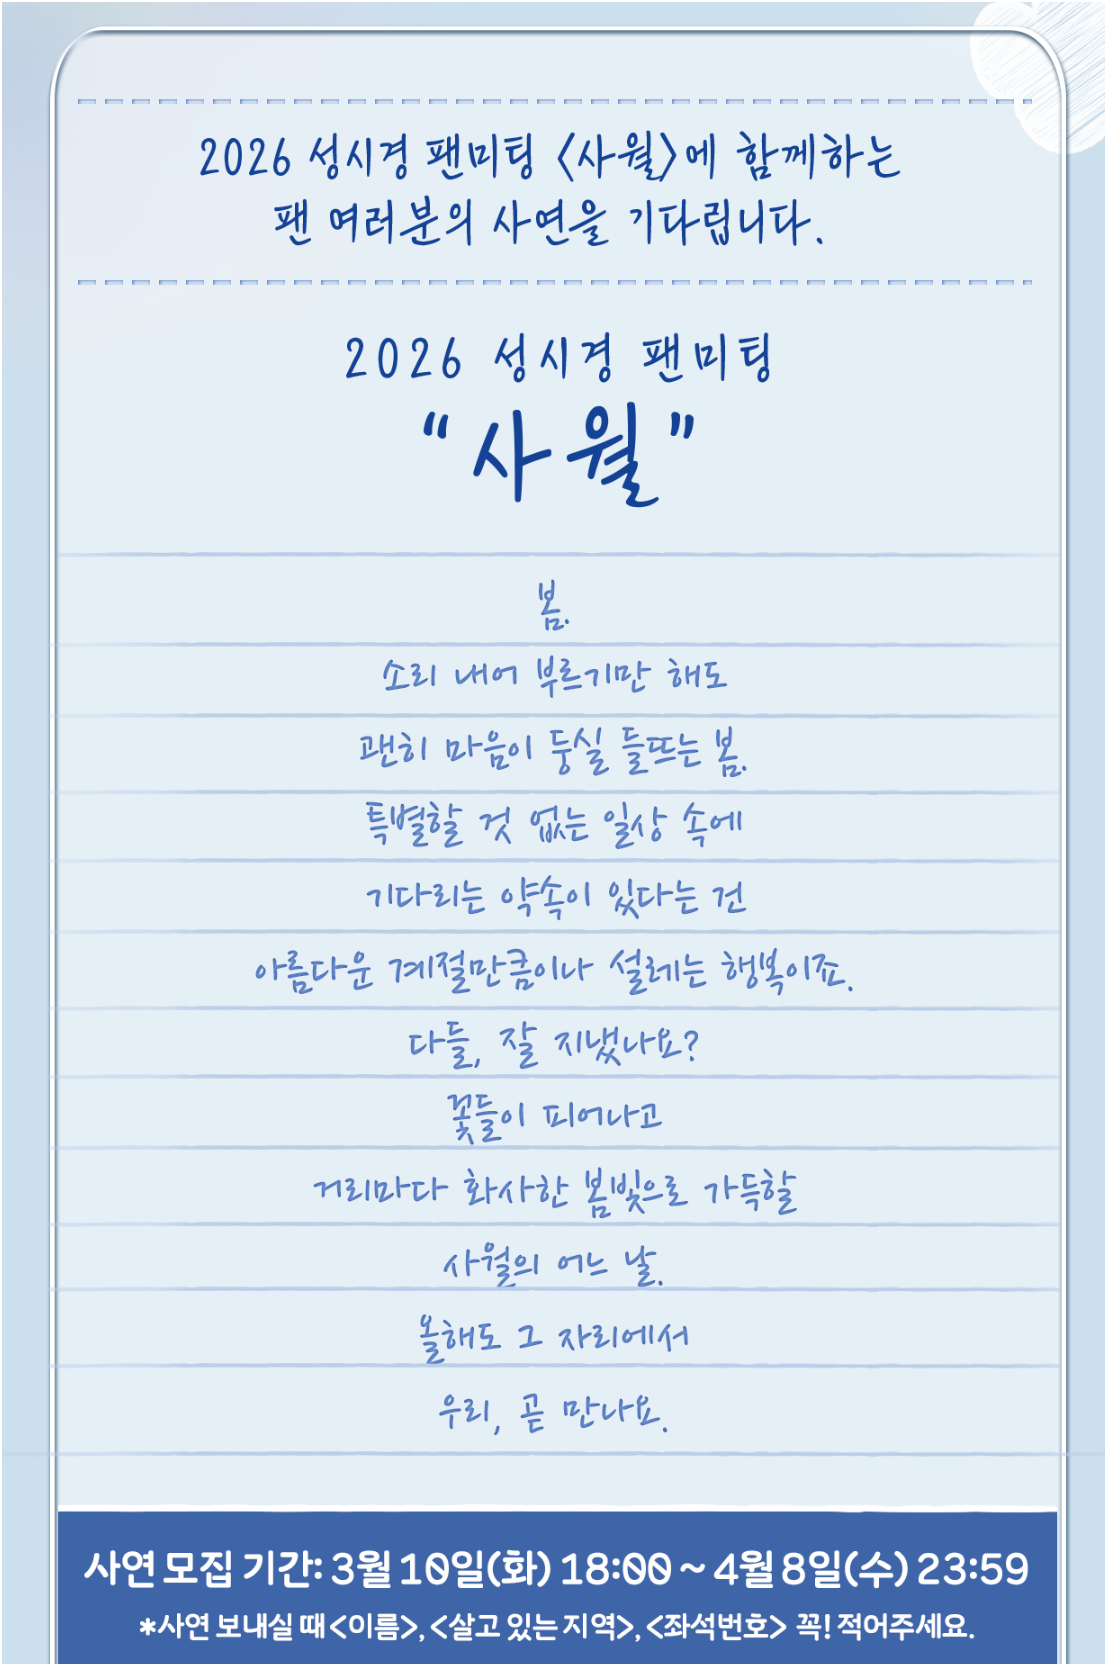 2026 성시경 팬미팅 <사월>에 함께하는
팬 여러분의 사연을 기다립니다.
2026 성시경 팬미팅
"사월"
봄.
소리 내어 부르기만 해도
괜히 마음이 둥실 들뜨는 봄.
특별할 것 없는 일상 속에
기다리는 약속이 있다는 건
아름다운 계절만큼이나 설레는 행복이죠.
다들, 잘 지냈나요?
꽃들이 피어나고
거리마다 화사한 봄빛으로 가득할
사월의 어느 날.
올해도 그 자리에서
우리, 곧 만나요.
사연 모집 기간: 3월 10일(화) 18:00 ~ 4월 8일(수) 23:59
*사연 보내실 때 <이름>, <살고 있는 지역>, <좌석번호> 꼭! 적어주세요.